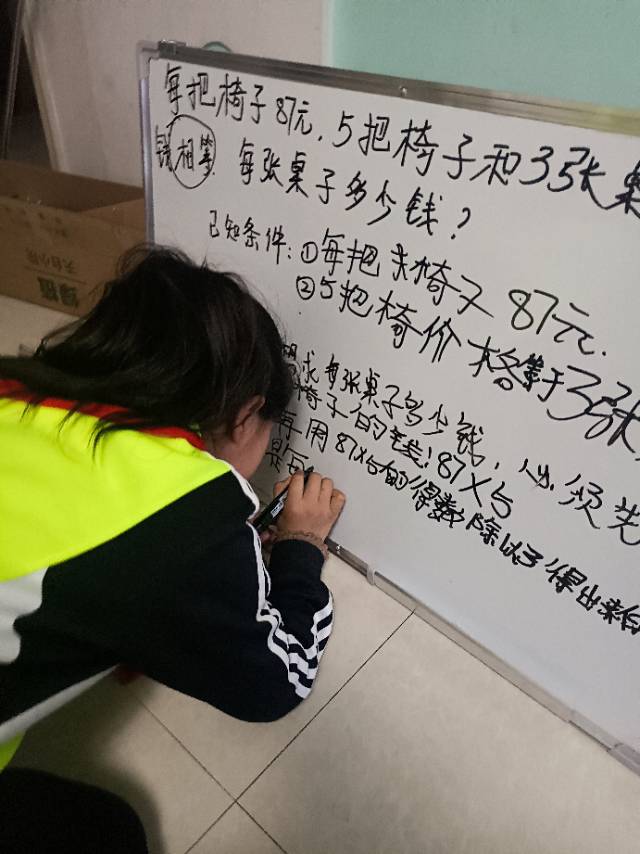 每把椅子87元,5把椅子和3张桌
钱相等. 每张桌子多少钱?
已知条件:①每把椅子87元.
②5把椅价格等于3张
想求每张桌子多少钱,必须先
椅子的钱!87×5
再用87×5的得数除以3得出来
是每